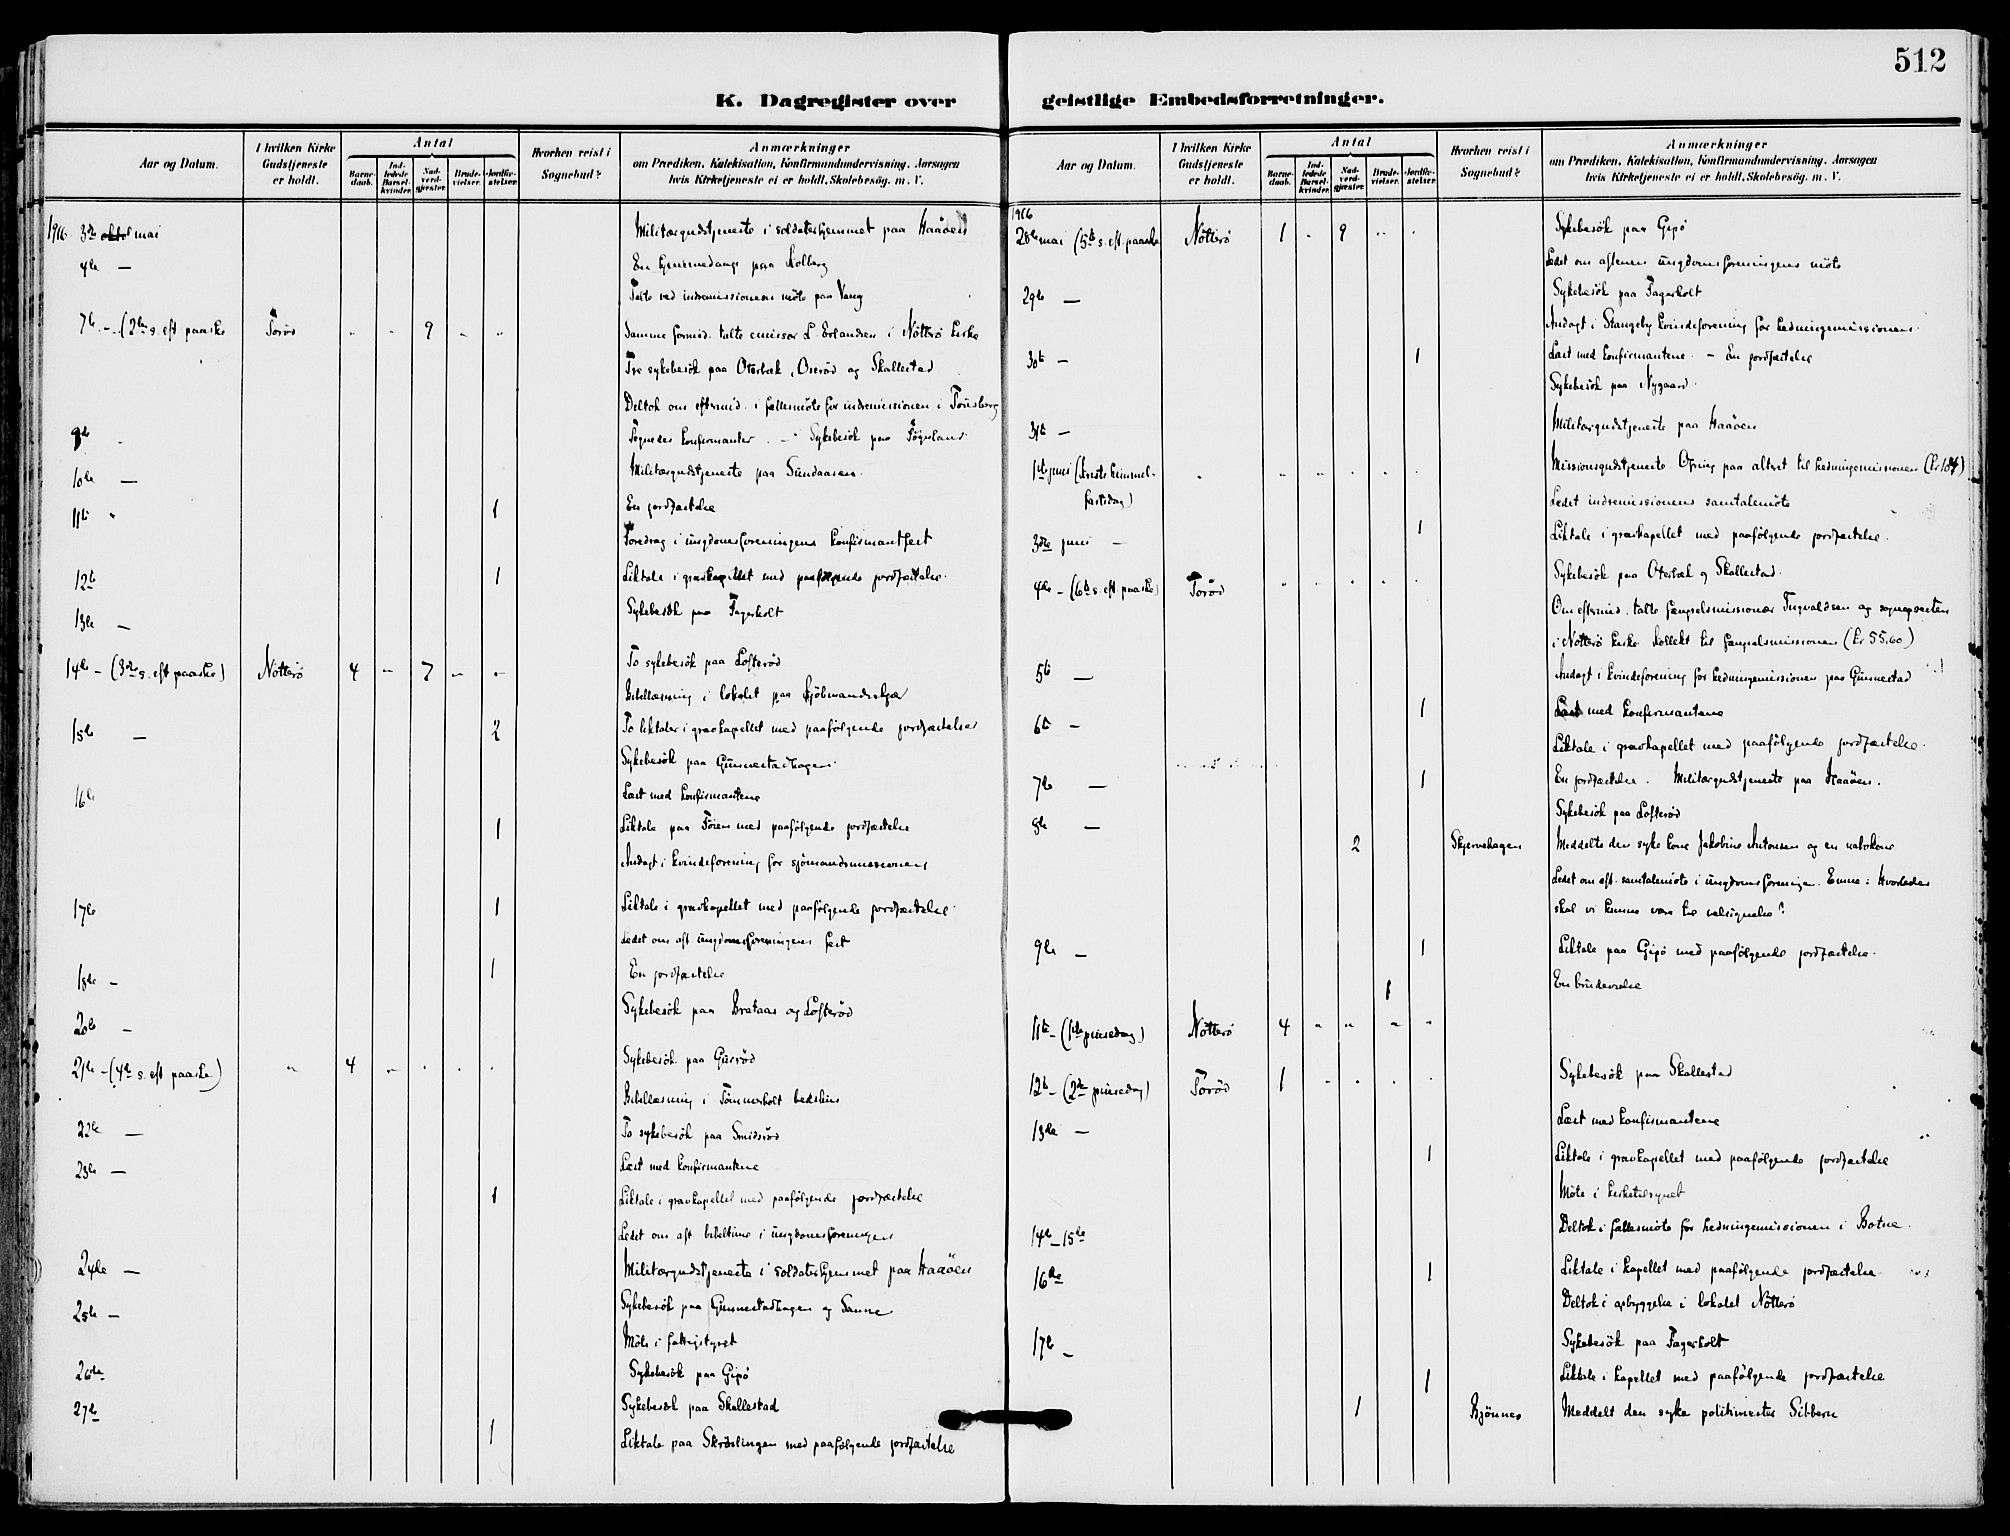 512
K. Dagregister over geistlige Embedsforretninger.
Aar og Datum.
I hvilken Kirke Gudstjeneste er holdt.
Antal
Barnedaab.
Indledede Barselkvinder.
Nadverdgjester.
Brudevielser.
Jordfæstelser.
Hvorhen reist i Sognebud?
Anmærkninger
om Prædiken, Katekisation, Konfirmandundervisning. Aarsagen
hvis Kirketjeneste ei er holdt, Skolebesøg. m. V.
1916 3die mai Militærgudstjeneste i soldaterhjemmet paa Haaöen
4de — En hjemmedaap paa Kolberg
Talte ved indremissionens möte paa Vang
7de - (2den s. eft paaske Torød " " 9 " " Samme formid. talte emissær L Erlandsen i Nötterö kirke
Tre sykebesök paa Oterbæk, Oserød og Skallestad
Deltok om eftermid. i fællesmöte for indremissionen i Tönsberg
9de Tegnedes konfirmanter. — Sykebesök paa
10de — Militærgudstjeneste paa Sundaasen.
11te " 1 En jordfæstelse
Foredrag i ungdomsforeningens konfirmantfest
12te 1 Liktale i gravkapellet med paafölgende jordfæstelse.
13de — Sykebesök paa Fagerholt
14de - (3die s. eft paaske) Nötterö 4 " 7 " " To sykebesök paa Lofteröd
Bibellæsning i lokalet paa
15de — 2 To liktaler i gravkapellet med paafölgende jordfæstelser
Sykebesök paa Gunnestadhagen
16de Læst med konfirmantene
1 Liktale paa Föien med paafölgende jordfæstelse
Andagt i kvindeforening for sjömandsmissionen
17de 1 Liktale i gravkapellet med paafölgende jordfæstelse.
Ledet om aft ungdomsforeningens fest
18de - 1 En jordfæstelse
20de - Sykebesök paa Brataas og Lofteröd
21de - (4de s. eft paaske) " 4 " " " " Sykebesök paa
Bibellæsning i Tömmerholt bedehus
22de — To sykebesök paa Smidsröd
23de — Læst med konfirmantene
1 Liktale i gravkapellet med paafölgende jordfæstelse
Ledet om aft bibeltime i ungdomsforeningen
24de — Militærgudstjeneste i soldaterhjemmet paa Haaöen
25de — Sykebesök paa Gunnestadhagen og Sanne
Möte i fattigstyret
26de Sykebesök paa Gipö
27de Sykebesök paa Skallestad
1 Liktale paa Skröslingen med paafölgende jordfæstelse
Aar og Datum.
I hvilken Kirke Gudstjeneste er holdt.
Antal
Barnedaab.
Indledede Barselkvinder.
Nadverdgjester.
Brudevielser.
Jordfæstelser.
Hvorhen reist i Sognebud?
Anmærkninger
om Prædiken, Katekisation, Konfirmandundervisning. Aarsagen
hvis Kirketjeneste ei er holdt, Skolebesøg. m. V.
1916
28de mai (5te s. eft. paaske Nötterö 1 " 9 " " Sykebesök paa Gipö
Ledet om aftenen ungdomsforeningens möte
29de — Sykebesök paa Fagerholt
Andagt i Stangeby kvindeforening for hedningemissionen.
30te — 1 Læst med konfirmantene. — En jordfæstelse
Sykebesök paa Nygaard.
31te — Militærgudstjeneste paa Haaöen
1ste juni (kristi himmelfartsdag) " " " " " " Missionsgudstjeneste. Ofring paa altret til hedningemissionen (kr 184)
Ledet indremissionens samtalemöte
3die juni — 1 Liktale i gravkapellet med paafölgende jordfæstelse.
Sykebesök paa Oterbæk og Skallestad.
4de - (6te s. eft. paaske) Torød " " " " Om eftermid. talte fængselsmissionær Tngvaldsen og sognepresten
i Nötterö kirke. Kollekt til fængselsmissionen (kr 55.60)
5te — Andagt i kvindeforening for hedningemissionen paa Gunnestad
6te — 1 Læst med konfirmantene
Liktale i gravkapellet med paafölgende jordfæstelse.
7de — 1 En jordfæstelse. Militærgudstjeneste paa Haaöen.
8de — Sykebesök paa Lofteröd
2 Skjervehagen Meddelte den syke kone Jakobine Antonsen og en nabokone
Ledet om aft. samtalemöte i ungdomsforeningen. Emne: Hvorledes
skal vi kunne være til velsignelse?
9de — 1 Liktale paa Gipö med paafölgende jordfæstelse.
1 En brudevielse
11te - (1ste pinsedag) Nötterö 4 " " " "
12te - (2den pinsedag) Torød 1 " " " " Sykebesök paa Skallestad
13de — Læst med konfirmantene
1 Liktale i gravkapellet med paafölgende jordfæstelse
Möte i kirketilsynet
14de - 15de Deltok i fællesmöte for hedningemissionen i Botne.
16de 1 Liktale i kapellet med paafölgende jordfæstelse
Deltok i opbyggelse i lokalet Nötterö
17de — Sykebesök paa Fagerholt
1 Liktale i kapellet med paafölgende jordfæstelse
1 Bjönnes Meddelt den syke politimester Sibbern